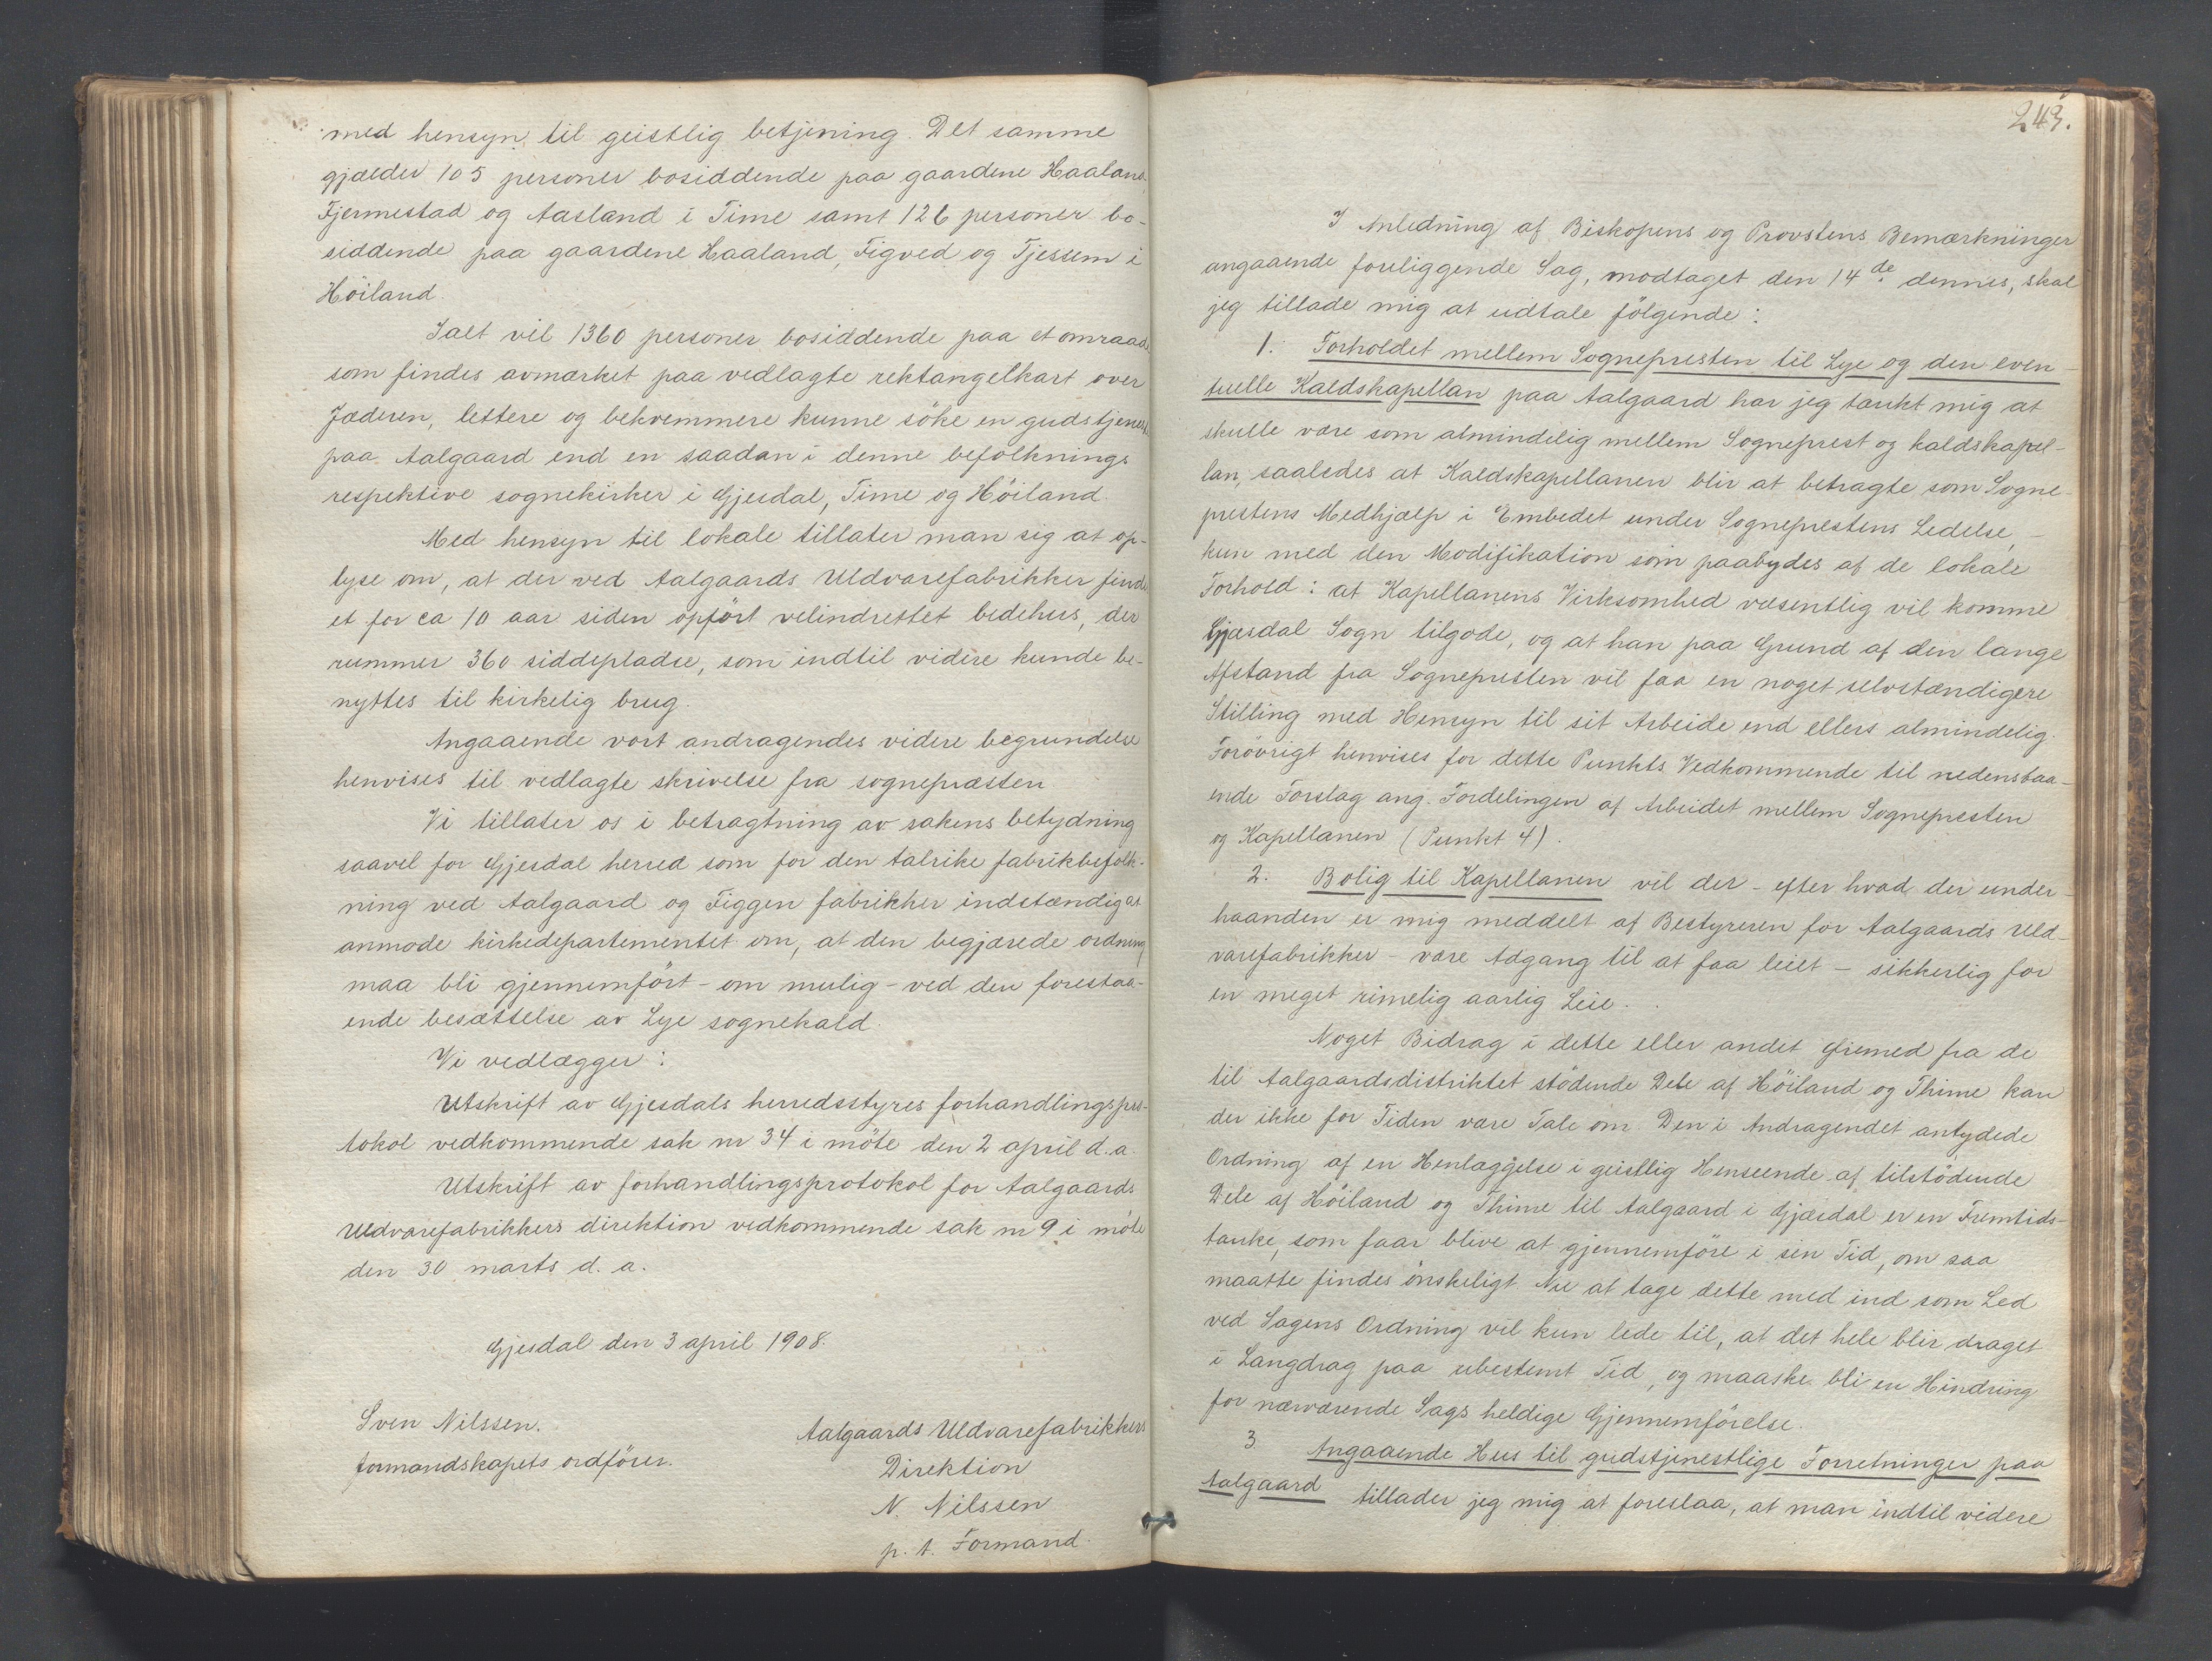 med hensyn til geistlig betjening. Det samme
gjælder 105 personer bosiddende paa gaardene Haaland,
Fjermestad og Aasland i Time samt 126 personer bo-
siddende paa gaardene Haaland, Figved og Tjessem i
Höiland.
Ialt vil 1360 personer bosiddende paa et omraade
som findes avmærket paa vedlagte rektangelkart over
Jæderen, lettere og bekvemmere kunne söke en gudstjeneste
paa Aalgaard end en saadan i denne befolknings
respektive sognekirker i Gjesdal, Time og Höiland.
Med hensyn til lokale tillater man sig at op-
lyse om, at der ved Aalgaards Uldvarefabrikker findes
et for ca 10 aar siden opfört velindrettet bedehus, der
rummer 360 siddepladse, som indtil videre kunde be-
nyttes til kirkelig brug.
Angaaende vort andragendes videre begrundelse
henvises til vedlagte skrivelse fra sognepræsten
Vi tillater os i betragtning av sakens betydning
saavel for Gjesdal herred som for den talrike fabrikbefolk-
ning ved Aalgaard og Figgen fabrikker indstændig at
anmode kirkedepartementet om, at den begjærede ordning
maa bli gjennemfört - om mulig - ved den forestaa-
ende besættelse av Lye sognekald.
Vi vedlægger:
Utskrift av Gjesdals herredsstyres forhandlingspro-
tokol vedkommende sak nr 34 i möte den 2 april d.a.
Utskrift av forhandlingsprotokol for Aalgaards
Uldvarefabrikkers direktion vedkommende sak nr 9 i möte
den 30 marts d. a.
Gjesdal den 3 april 1908.
Sven Nilssen.
formandskapets ordförer.
Aalgaards Uldvarefabrikkers
Direktion
N. Nilssen
p. t. Formand.
243.
I Anledning af Biskopens og Provstens Bemærkninger
angaaende foreliggende Sag, modtaget den 14de dennes, skal
jeg tillade mig at udtale fölgende:
1. Forholdet mellem Sognepresten til Lye og den even-
tuelle Kaldskapellan paa Aalgaard har jeg tænkt mig at
skulle være som almindelig mellem Sogneprest og kaldskapel-
lan, saaledes at Kaldskapellanen blir at betragte som Sogne-
prestens Medhjælp i Embedet under Sogneprestens Ledelse, -
kun med den Modifikation som paabydes af de lokale
Forhold: at Kapellanens Virksomhed væsentlig vil komme
Gjæsdal Sogn tilgode, og at han paa Grund af den lange
Afstand fra Sognepresten vil faa en noget selvstændigere
Stilling med Hensyn til sit Arbeide end ellers almindelig.
Forövrigt henvises for dette Punkts Vedkommende til nedenstaa-
ende Forslag ang. Fordelingen af Arbeidet mellem Sognepresten
og Kapellanen (Punkt 4).
2. Bolig til Kapellanen vil der - efter hvad der under-
haanden er mig meddelt af Bestyreren for Aalgaards Uld-
varefabrikker - være Adgang til at faa leiet - sikkerlig for
en meget rimelig aarlig Leie.
Noget Bidrag i dette eller andet Öiemed fra de
til Aalgaardsdistriktet stödende Dele af Höiland og Thime kan
der ikke for Tiden være Tale om. Den i Andragendet antydede
Ordning af en Henlæggelse i geistlig Henseende af tilstödende
Dele af Höiland og Thime til Aalgaard i Gjæsdal er en Fremtids-
tanke, som faar blive at gjennemföre i sin Tid, om saa
maatte findes önskeligt. Nu at tage dette med ind som Led
ved Sagens Ordning vil kun lede til, at det hele blir draget
i Langdrag paa ubestemt Tid, og maaske bli en Hindring
for nærværende Sags heldige Gjennemförelse.
3 Angaaende Hus til gudstjenestlige Forretninger paa
Aalgaard tillader jeg mig at foreslaa, at man indtil videre